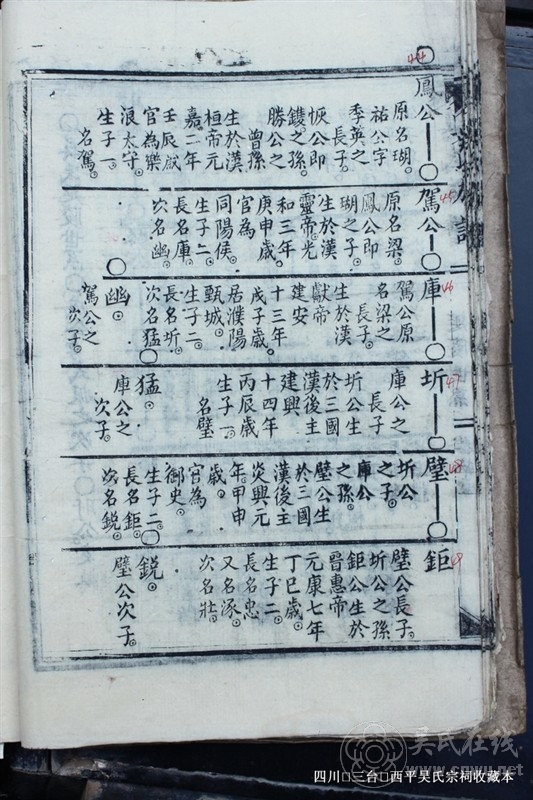 44
鳳公
原名瑚。
祐公字
季英之
長子。
恢公即
鑊之孫。
勝公之
曾孫
生於漢
桓帝元
嘉二年
壬辰歲
官為樂
浪太守。
生子一。
名駕。
45
駕公
原名梁。
鳳公即
瑚之子。
生於漢
靈帝光
和三年
庚申歲。
官為
同陽侯。
生子二。
長名庫。
次名幽。
46
庫
駕公原
名梁之
長子。
生於漢
獻帝
建安
十三年
戊子歲。
居濮陽
甄城。
生子二。
長名圻。
次名猛。
幽。
駕公之
次子。
47
圻
庫公之
長子
圻公生
於三國
漢後主
建興
十四年
丙辰歲
生子一。
名璧
猛。
庫公之
次子。
48
璧
圻公
之子。
庫公
之孫。
璧公生
於三國
漢後主
炎興元
年。甲申
歲。
官為
御史。
生子二。
長名鉅。
次名銳。
49
鉅
璧公長子。
圻公之孫
鉅公生於
晉惠帝
元康七年
丁巳歲。
生子二。
長名忠
又名涿。
次名壯。
銳。
璧公次子。
吳氏在线
www.cnwu.net
四川□三台□西平吴氏宗祠收藏本